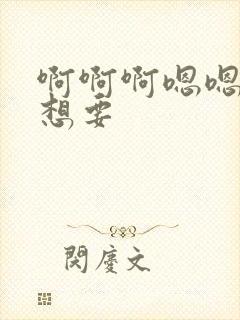 啊啊啊嗯嗯
想要
閔慶文